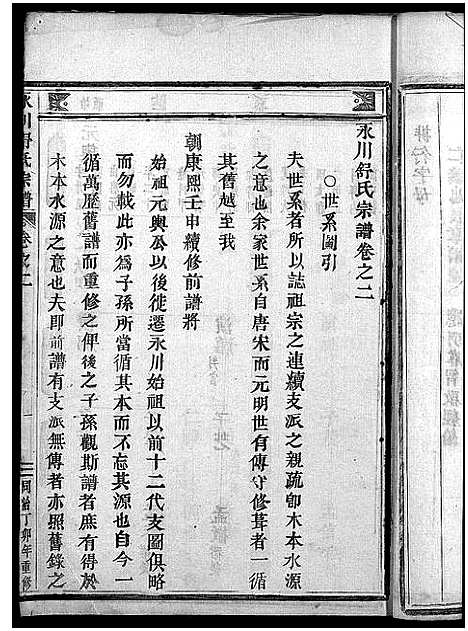 永川舒氏宗譜卷之二
○世系圖引
夫世系者所以誌祖宗之連續支派之親疏卽木本水源
之意也余家世系自唐宋而元明世有傳守修葺者一循
其舊越至我
朝康熙壬申續修前譜將
始祖元輿公以後徙遷永川始祖以前十二代支圖俱略
而勿載此亦為子孫所當循其本而不忘其源也自今一
循萬歷舊譜而重修之俾後之子孫觀斯譜者庶有得於
木本水源之意也夫即前譜有支派無傳者亦照舊錄之
永川舒氏宗譜 卷之二
丁卯年重修
排行字母